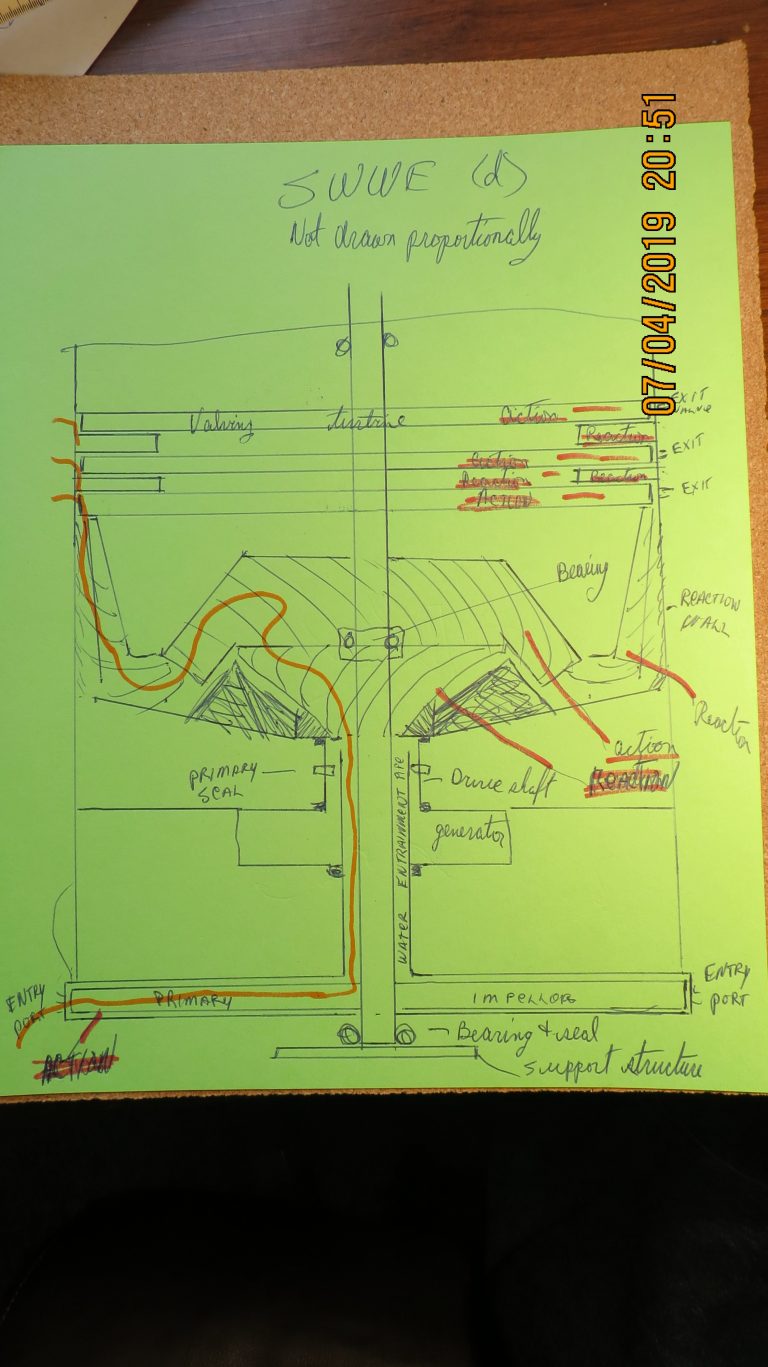 07/04/2019 20:51
SWWE (d)
Not drawn proportionally
EXIT
Valving turbine Action
Reaction
EXIT
Action
Reaction Reaction
EXIT
Action
Bearing
REACTION
WALL
Reaction
action
REACTION
PRIMARY
SEAL
Drive shaft
generator
WATER ENTRAINMENT PIPE
ENTRY
PORT
PRIMARY IMPELLORS
ENTRY
PORT
ACTION
Bearing & seal
support structure